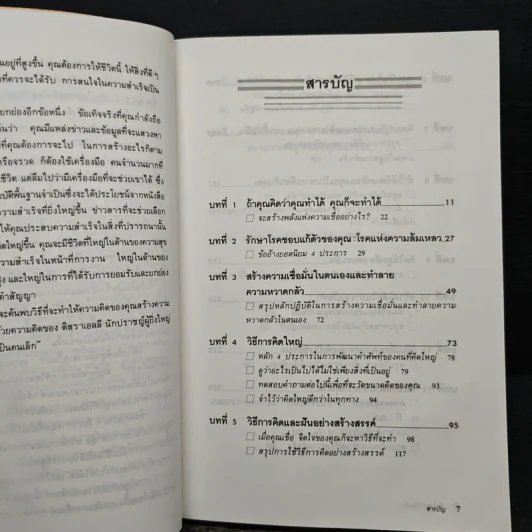 นอยู่ที่สูงขึ้น คุณต้องการให้ชีวิตนี้ ให้สิ่งที่ดีๆ
ที่ควรจะได้รับ การสนใจในความสำเร็จเป็น
ยกย่องอีกข้อหนึ่ง ข้อเท็จจริงที่คุณกำลังถือ
ว่า คุณมีแหล่งข่าวและข้อมูลที่จะแสวงหา
ที่คุณต้องการจะไป ในการสร้างอะไรก็ตาม
หรือจรวด ก็ต้องใช้เครื่องมือ คนจำนวนมากที่
ชีวิต แต่ลืมไปว่ามีเครื่องมือที่จะช่วยเขาได้ ซึ่ง
บัติพื้นฐานจำเป็นซึ่งจะได้ประโยชน์จากหนังสือ
ความสำเร็จที่ยิ่งใหญ่ขึ้น ข่าวสารที่จะช่วยเลือก
ให้คุณประสบความสำเร็จในสิ่งที่ปรารถนานั้น
คิดใหญ่ขึ้น คุณจะมีชีวิตที่ใหญ่ในด้านของความสุข
ความสำเร็จในหน้าที่การงาน ใหญ่ในด้านของ
และใหญ่ในการที่ได้รับการยอมรับและยกย่อง
คำสัญญา
จะค้นพบวิธีที่จะทำให้ความคิดของคุณสร้างความ
ด้วยความคิดของ ดิสราเอลลี นักปราชญ์ผู้ยิ่งใหญ่
เป็นคนเล็ก"
สารบัญ
บทที่ 1 ถ้าคุณคิดว่าคุณทำได้ คุณก็จะทำได้ 11
□ จะสร้างพลังแห่งความเชื่ออย่างไร? 22
บทที่ 2 รักษาโรคชอบแก้ตัวของคุณ : โรคแห่งความล้มเหลว 27
□ ข้ออ้างยอดนิยม 4 ประการ 29
บทที่ 3 สร้างความเชื่อมั่นในตนเองและทำลาย
ความหวาดกลัว 49
□ สรุปหลักปฏิบัติในการสร้างความเชื่อมั่นและทำลายความ
หวาดกลัวในตนเอง 72
บทที่ 4 วิธีการคิดใหญ่ 73
□ หลัก 4 ประการในการพัฒนาคำศัพท์ของคนที่คิดใหญ่ 78
□ ดูว่าอะไรเป็นไปได้ไม่ใช่เพียงสิ่งที่เป็นอยู่ 79
□ ทดสอบคำถามต่อไปนี้เพื่อที่จะวัดขนาดคิดของคุณ 93
□ จำไว้ว่าคิดใหญ่ดีกว่าในทุกทาง 94
บทที่ 5 วิธีการคิดและฝันอย่างสร้างสรรค์ 95
□ เมื่อคุณเชื่อ จิตใจของคุณก็จะหาวิธีที่จะทำ 98
□ สรุปการใช้วิธีการคิดอย่างสร้างสรรค์ 117
สารบัญ 7